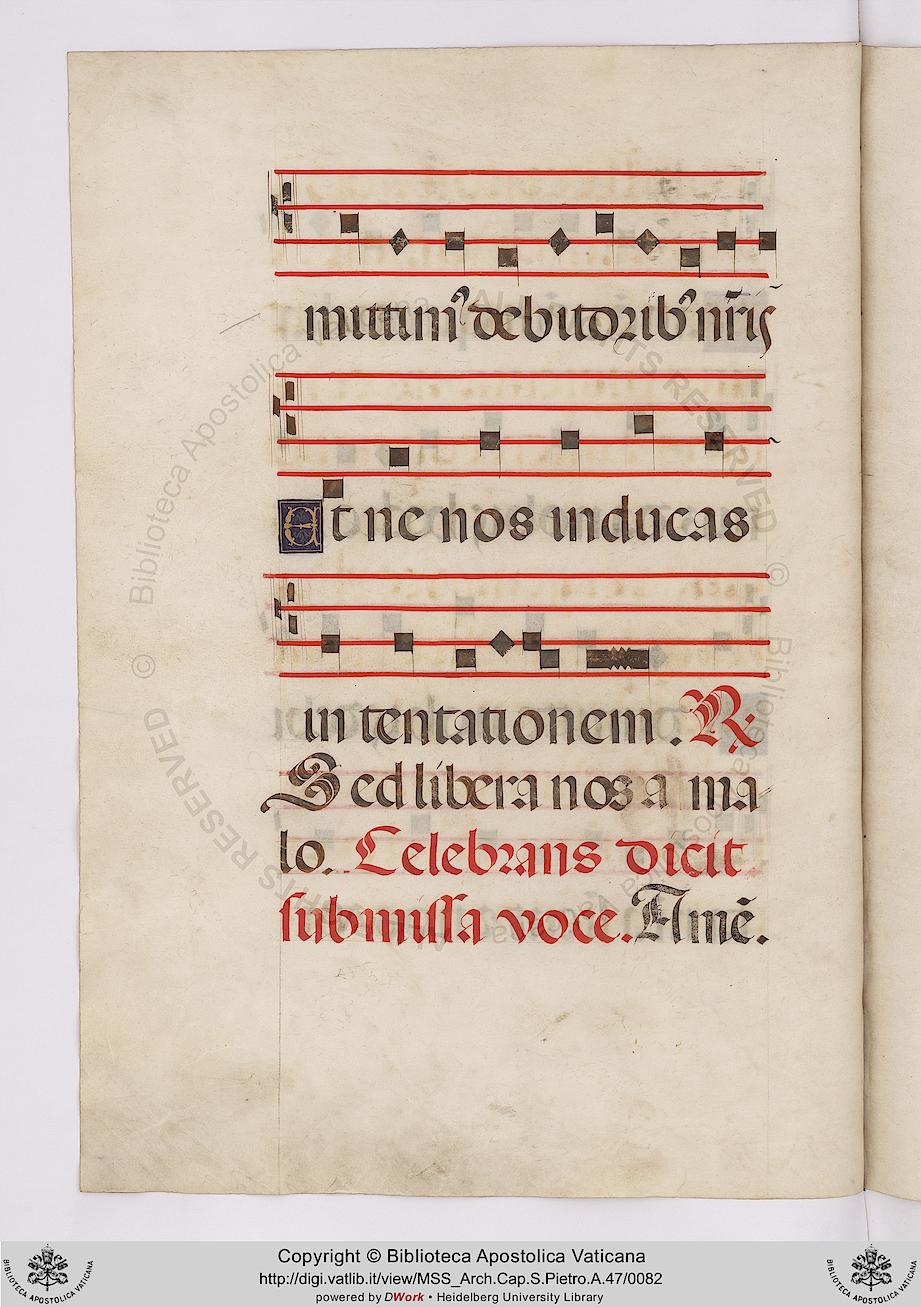 mittimꝰ debitoribꝰ nr̃is
Et ne nos inducas
in tentationem. ℟:
Sed libera nos a ma
lo. Celebrans dicit
submissa voce. Amẽ.
© Biblioteca Apostolica Vaticana ALL RIGHTS RESERVED
Copyright © Biblioteca Apostolica Vaticana
http://digi.vatlib.it/view/MSS_Arch.Cap.S.Pietro.A.47/0082
powered by DWork • Heidelberg University Library
BIBLIOTECA APOSTOLICA VATICANA
BIBLIOTECA APOSTOLICA VATICANA